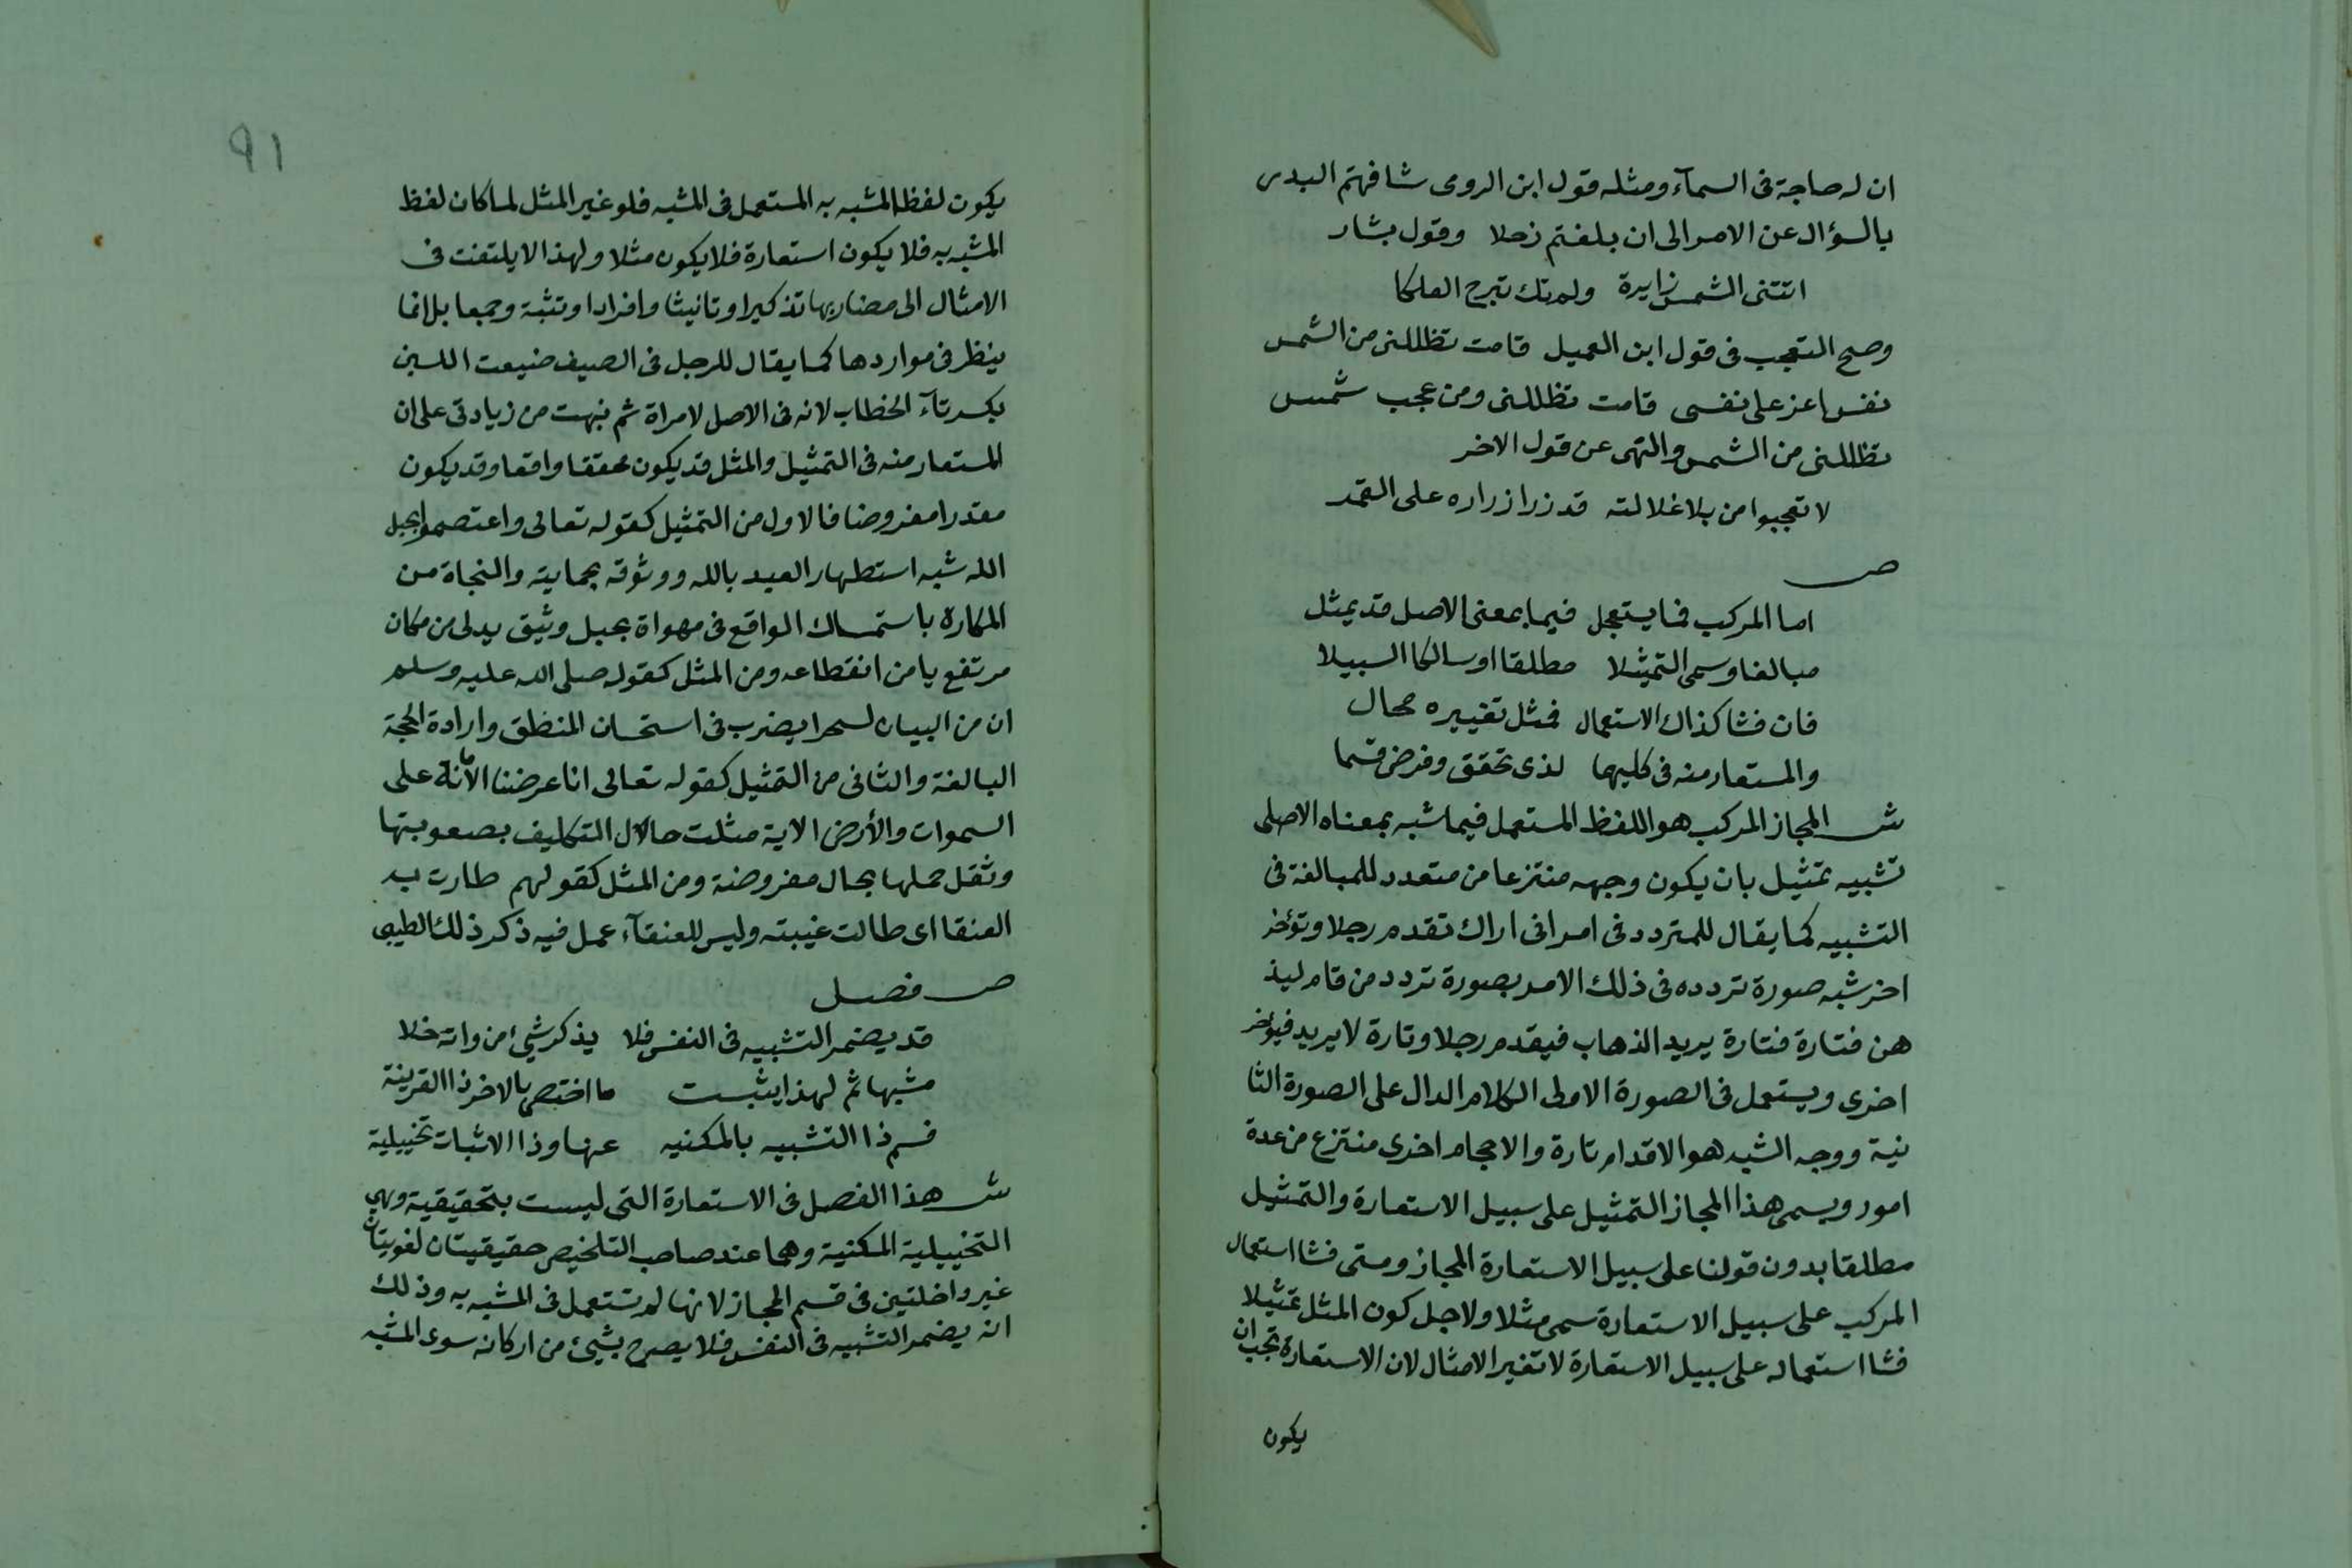 ان له حاجة فى السمآء ومثله قول ابن الرومى شافهتم البدر
بالسؤال عن الامر الى ان بلغتم زحلا وقول بشار
اتتنى الشمس زايرة ولم تك تبرح الفلكا
وصح التعجب فى قول ابن العميل قامت تظللنى من الشمس
نفس اعز على نفسى قامت تظللنى ومن عجب شمس
تظللنى من الشمس والنهى عن قول الاخر
لا تعجبوا من بلا غلالته قد زر ازراره على القمر
ص
اما المركب فما يستعمل فيما بمعنى الاصل قد يمثل
مبالغا وسمى التمثيلا مطلقا او سالكا السبيلا
فان فشا كذاك الاستعمال فمثل تغييره محال
والمستعار منه فى كليهما لذى تحقق وفرض قسما
ش المجاز المركب هو اللفظ المستعمل فيما شبه بمعناه الاصلى
تشبيه تمثيل بان يكون وجهه منتزعا من متعدد للمبالغة فى
التشبيه كما يقال للمتردد فى امر انى اراك تقدم رجلا وتؤخر
اخر شبه صورة تردده فى ذلك الامر بصورة تردد من قام ليذ
هن فتارة فتارة يريد الذهاب فيقدم رجلا وتارة لا يريد فيؤخر
اخرى ويستعمل فى الصورة الاولى الكلام الدال على الصورة الثا
نية ووجه الشبه هو الاقدام تارة والاحجام اخرى منتزع من عدة
امور ويسمى هذا المجاز التمثيل على سبيل الاستعارة والتمثيل
مطلقا بدون قولنا على سبيل الاستعارة المجاز ومتى فشا استعمال
المركب على سبيل الاستعارة سمى مثلا ولاجل كون المثل تمثيلا
فشا استعماله على سبيل الاستعارة لا تغير الامثال لان الاستعارة تجب ان
يكون
91
يكون لفظ المشبه به المستعمل فى المشبه فلو غير المثل لما كان لفظ
المشبه به فلا يكون استعارة فلا يكون مثلا ولهذا لا يلتفت فى
الامثال الى مضاربها تذكيرا وتانيثا وافرادا وتثبة وجمعا بل انما
ينظر فى مواردها كما يقال للرجل فى الصيف ضيعت اللبن
بكسر تآء الخطاب لانه فى الاصل لامراة ثم نبهت من زيادتى على ان
المستعار منه فى التمثيل والمثل قد يكون محققا واقعا وقد يكون
مقدرا مفروضا فالاول من التمثيل كقوله تعالى واعتصموا بحبل
الله شبه استظهار العبد بالله ووثوقه بحمايته والنجاة من
المكاره باستمساك الواقع فى مهواة بحبل وثيق يدلى من مكان
مرتفع يامن انقطاعه ومن المثل كقوله صلى الله عليه وسلم
ان من البيان لسحرا يضرب فى استحسان المنطق وارادة الحجة
البالغة والثانى من التمثيل كقوله تعالى انا عرضنا الامانة على
السموات والأرض الاية مثلت حال التكليف بصعوبتها
وثقل حملها بحال مفروضة ومن المثل كقولهم طارت به
العنقا اى طالت غيبته وليس للعنقآء عمل فيه ذكر ذلك الطيبى
ص فصل
قد يضمر التشبيه فى النفس فلا يذكر شئ من واته خلا
مشبها ثم لهذا يثبت ما اختص بالاخر ذا القرينة
فسم ذا التشبيه بالمكنيه عنها وذا الاثبات تخييلية
ش هذا الفصل فى الاستعارة التى ليست بتحقيقية وهى
التخييلية المكنية وهما عند صاحب التلخيص حقيقيتان لغويتان
غير داخلتين فى قسم المجاز لانها لم تستعمل فى المشبه به وذلك
انه يضمر التشبيه فى النفس فلا يصرح بشئ من اركانه سوى المشبه